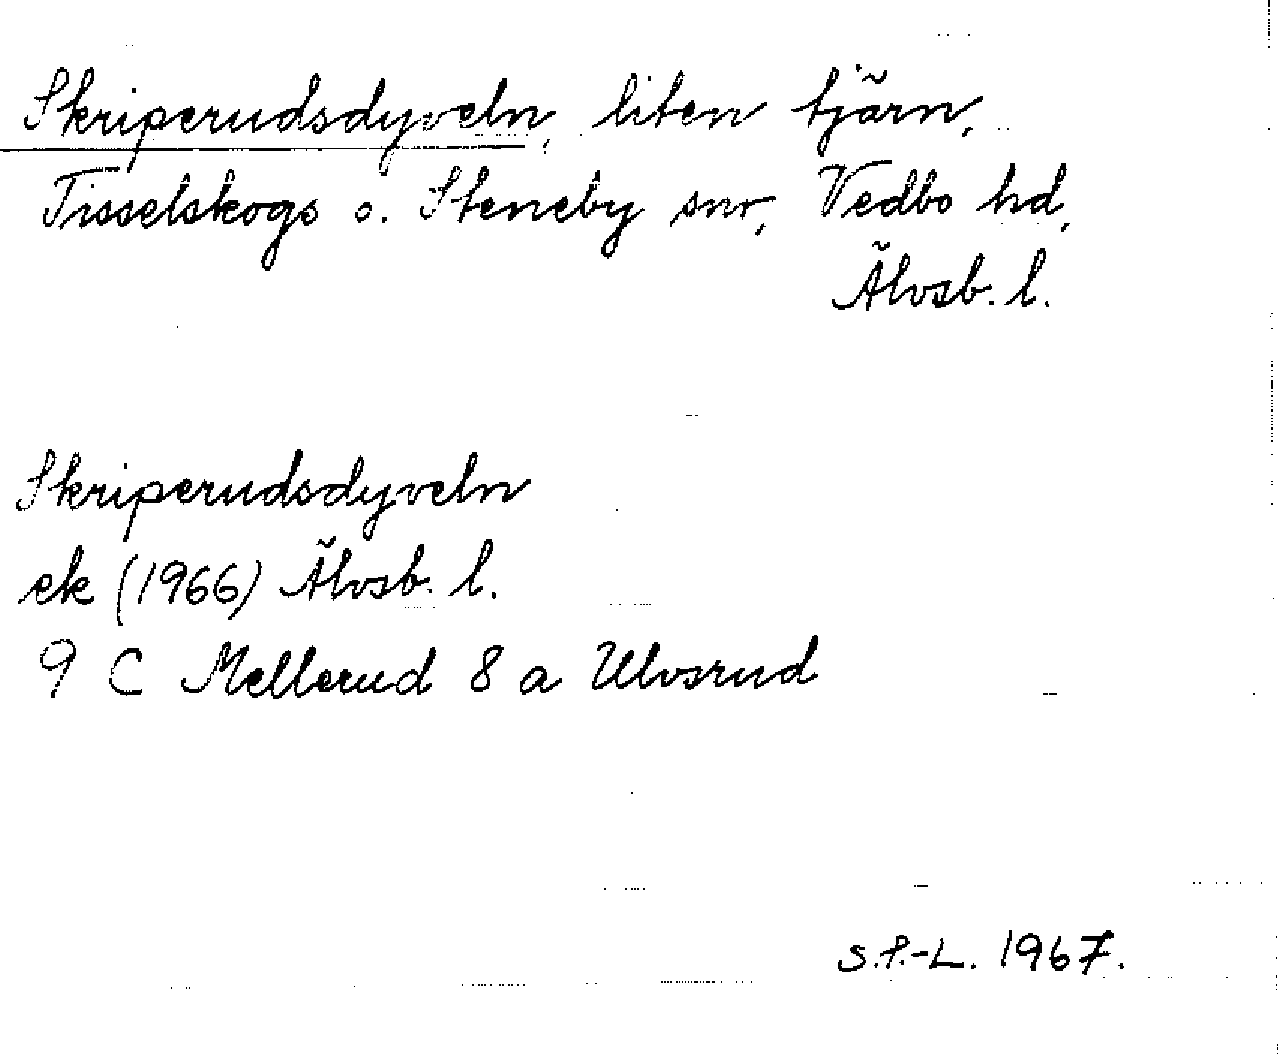 Skriperudsdyveln, liten tjärn,
Tisselskogs o. Steneby snr, Vedbo hd,
Älvsb. l.
Skriperudsdyveln
ek (1966) Älvsb. l.
9 C Mellerud 8 a Ulvsrud
S.F.-L. 1967.